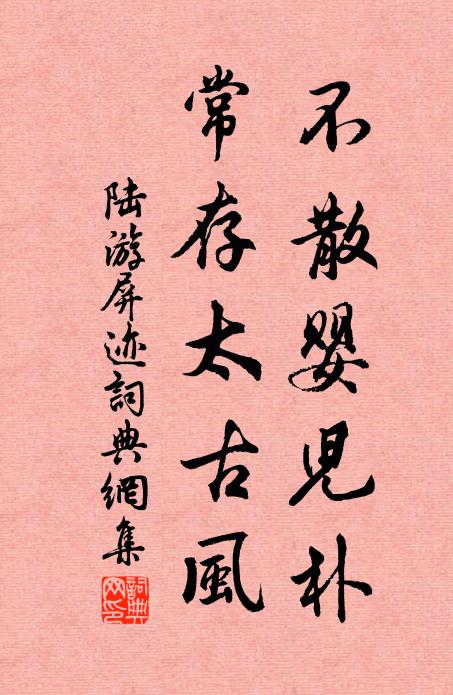 不散嬰兒朴
常存太古風
陸游屏迹詞典網集
詞典网印